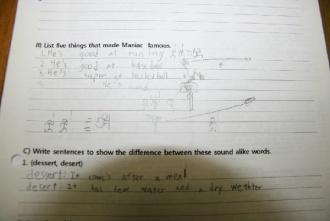 B) List five things that made Maniac famous.
1. He's good at runing
2. He's good at baseball
3. He's super at baseketball
He's kind
C) Write sentences to show the difference between these sound alike words.
1. (dessert, desert)
dessert: It comes after a meal
desert: It has few water and a dry wethter